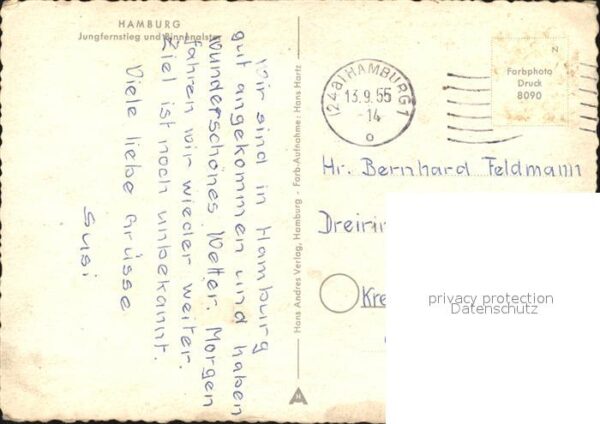 HAMBURG
Jungfernstieg und Binnenalster
Wir sind in Hamburg
gut angekommen und haben
wunderschönes Wetter. Morgen
fahren wir wieder weiter.
Ziel ist noch unbekannt.
Viele liebe Grüsse
Susi
Hans Andres Verlag, Hamburg - Farb-Aufnahme: Hans Hartz
H
(24a) HAMBURG 1
13.9.55
-14
o
N
Farbphoto
Druck
8090
Hr. Bernhard Feldmann
Dreirin
Kre
privacy protection
Datenschutz